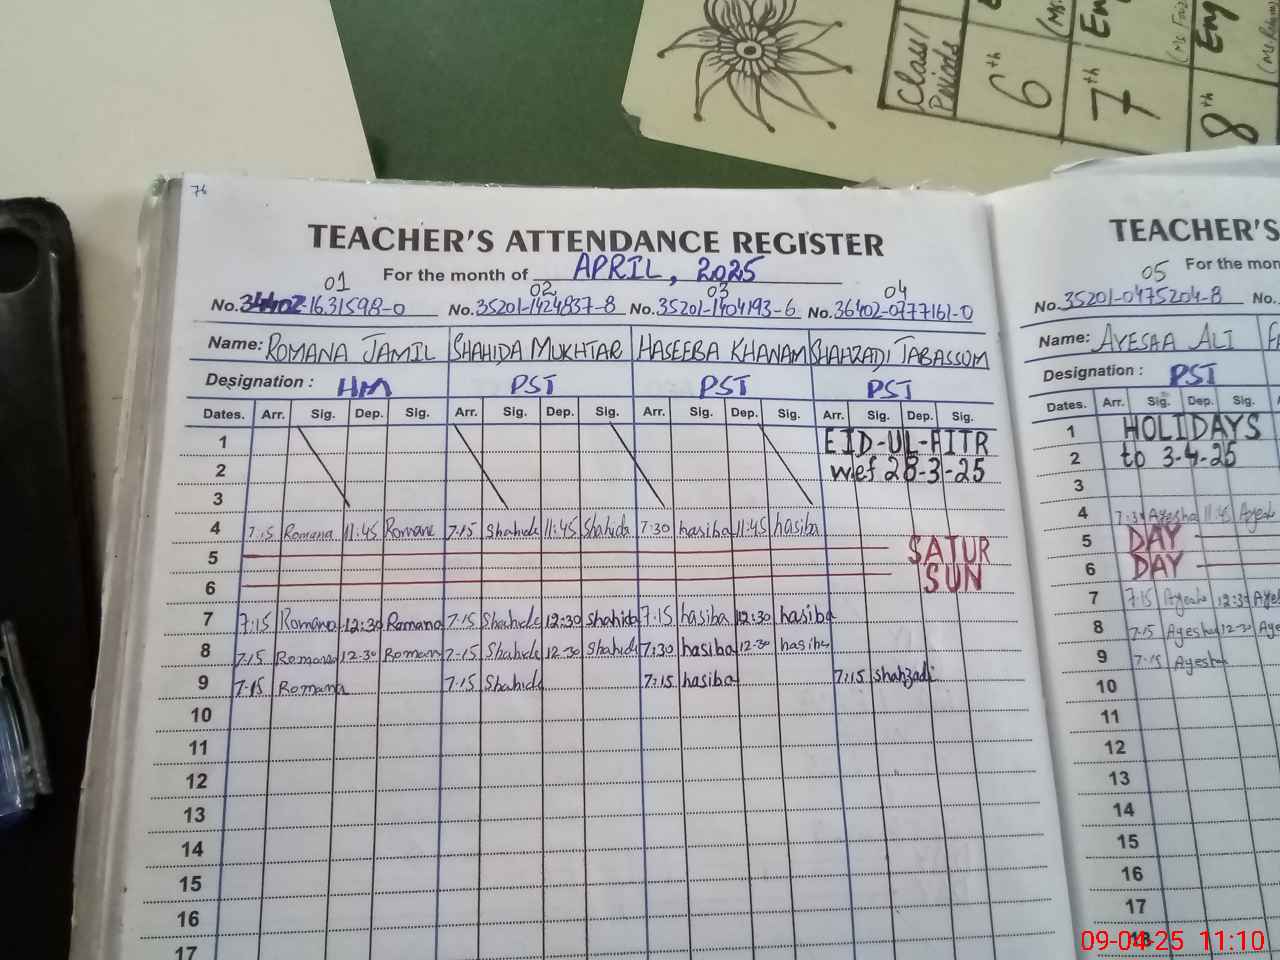 Class/
Periods
6th
7th
8th
Eng
76
TEACHER'S ATTENDANCE REGISTER
For the month of APRIL, 2025
01 02 03 04
No. 34402-1631598-0 No. 35201-1424837-8 No. 35201-1404193-6 No. 36402-0777161-0
Name: ROMANA JAMIL SHAHIDA MUKHTAR HASEEBA KHANAM SHAHZADI TABASSUM
Designation: HM PST PST PST
Dates. Arr. Sig. Dep. Sig. Arr. Sig. Dep. Sig. Arr. Sig. Dep. Sig. Arr. Sig. Dep. Sig.
1 EID-UL-FITR
2 wef 28-3-25
3
4 7:15 Romana 11:45 Romana 7:15 Shahida 11:45 Shahida 7:30 hasiba 11:45 hasiba
5 SATUR
6 SUN
7 7:15 Romana 12:30 Romana 7:15 Shahida 12:30 Shahida 7:15 hasiba 12:30 hasiba
8 7:15 Romana 12:30 Romana 7:15 Shahida 12:30 Shahida 7:30 hasiba 12:30 hasiba
9 7:15 Romana 7:15 Shahida 7:15 hasiba 7:15 shahzadi
10
11
12
13
14
15
16
17
TEACHER'S
For the mon
05
No. 35201-0475204-8 No.
Name: AYESHA ALI
Designation: PST
Dates. Arr. Sig. Dep. Sig.
1 HOLIDAYS
2 to 3-4-25
3
4 7:30 Ayesha 11:45 Ayesh
5 DAY
6 DAY
7 7:15 Ayesha 12:30 Aye
8 7:15 Ayesha 12:30 Aye
9 7:15 Ayesha
10
11
12
13
14
15
16
17
18
09-04-25 11:10